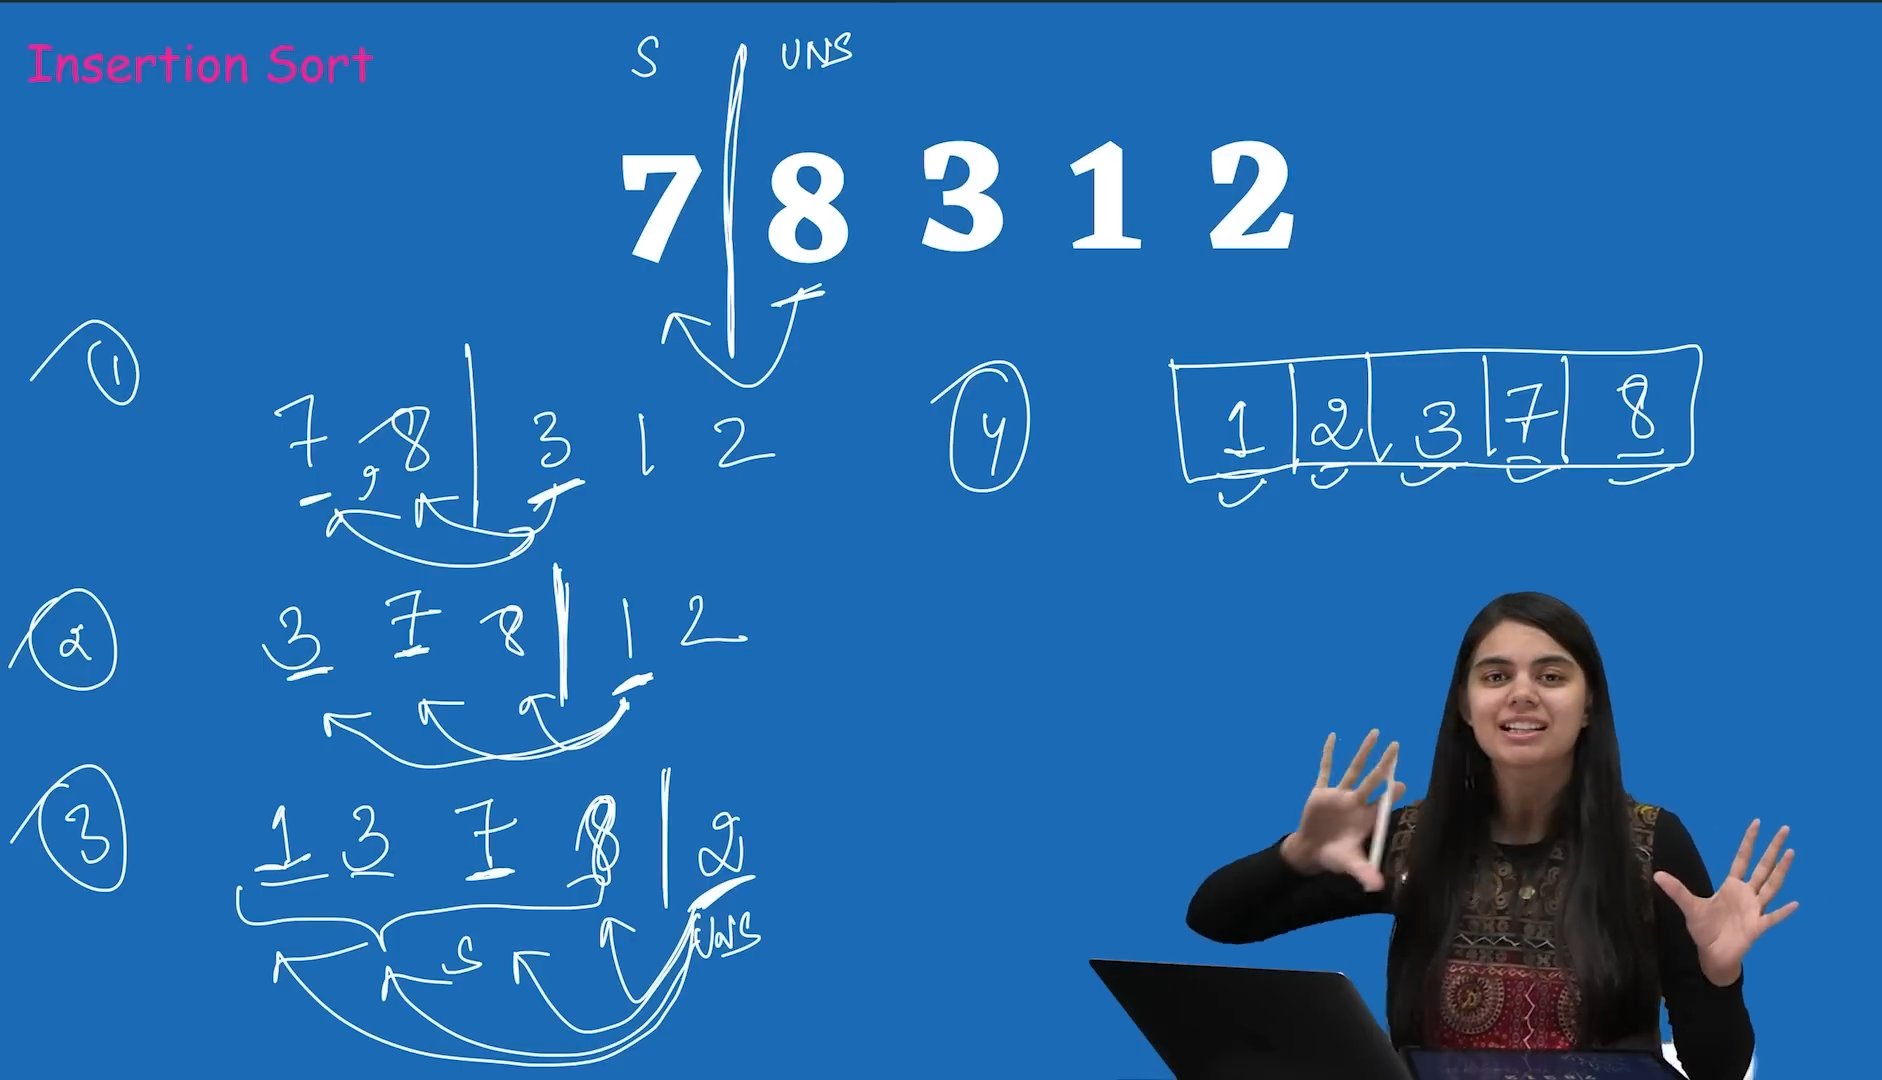 Insertion Sort
S UNS
7 8 3 1 2
1
7 , 8 3 1 2
2
3 7 8 1 2
3
1 3 7 8 2
S UNS
4
1 2 3 7 8